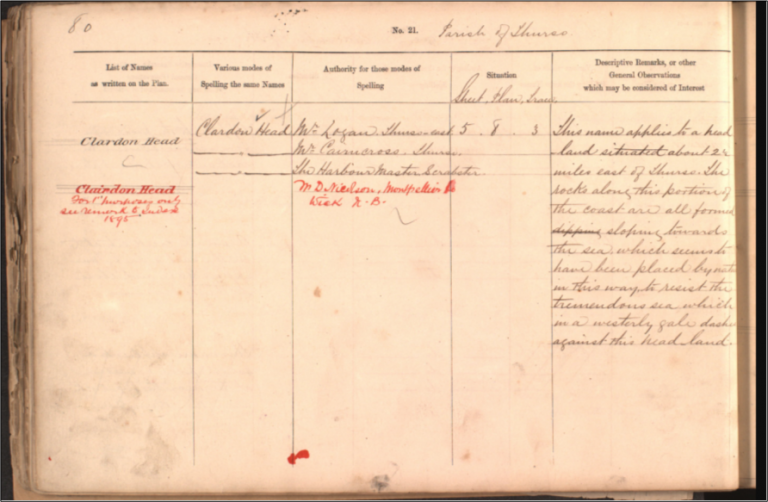 80
No. 21. Parish of Thurso
List of Names
as written on the Plan.
Various modes of
Spelling the same Names
Authority for those modes of
Spelling
Situation
Descriptive Remarks, or other
General Observations
which may be considered of Interest
Sheet, Plan, Trace,
Clardon Head
Clairdon Head
only
see remark
1895
Clardon Head
Mr. Logan. Thurso-east
Mr. Cairncross. Thurso.
The Harbour Master Scrabster.
Mr. D. Nicolson,
Wick N.B.
5. 8. 3
This name applies to a head
land situated about 2½
miles east of Thurso. The
rocks along this portion of
the coast are all formed
dipping sloping towards
the sea, which seems to
have been placed by
in this way, to resist the
tremendous sea which
in a westerly gale dashes
against this head land.